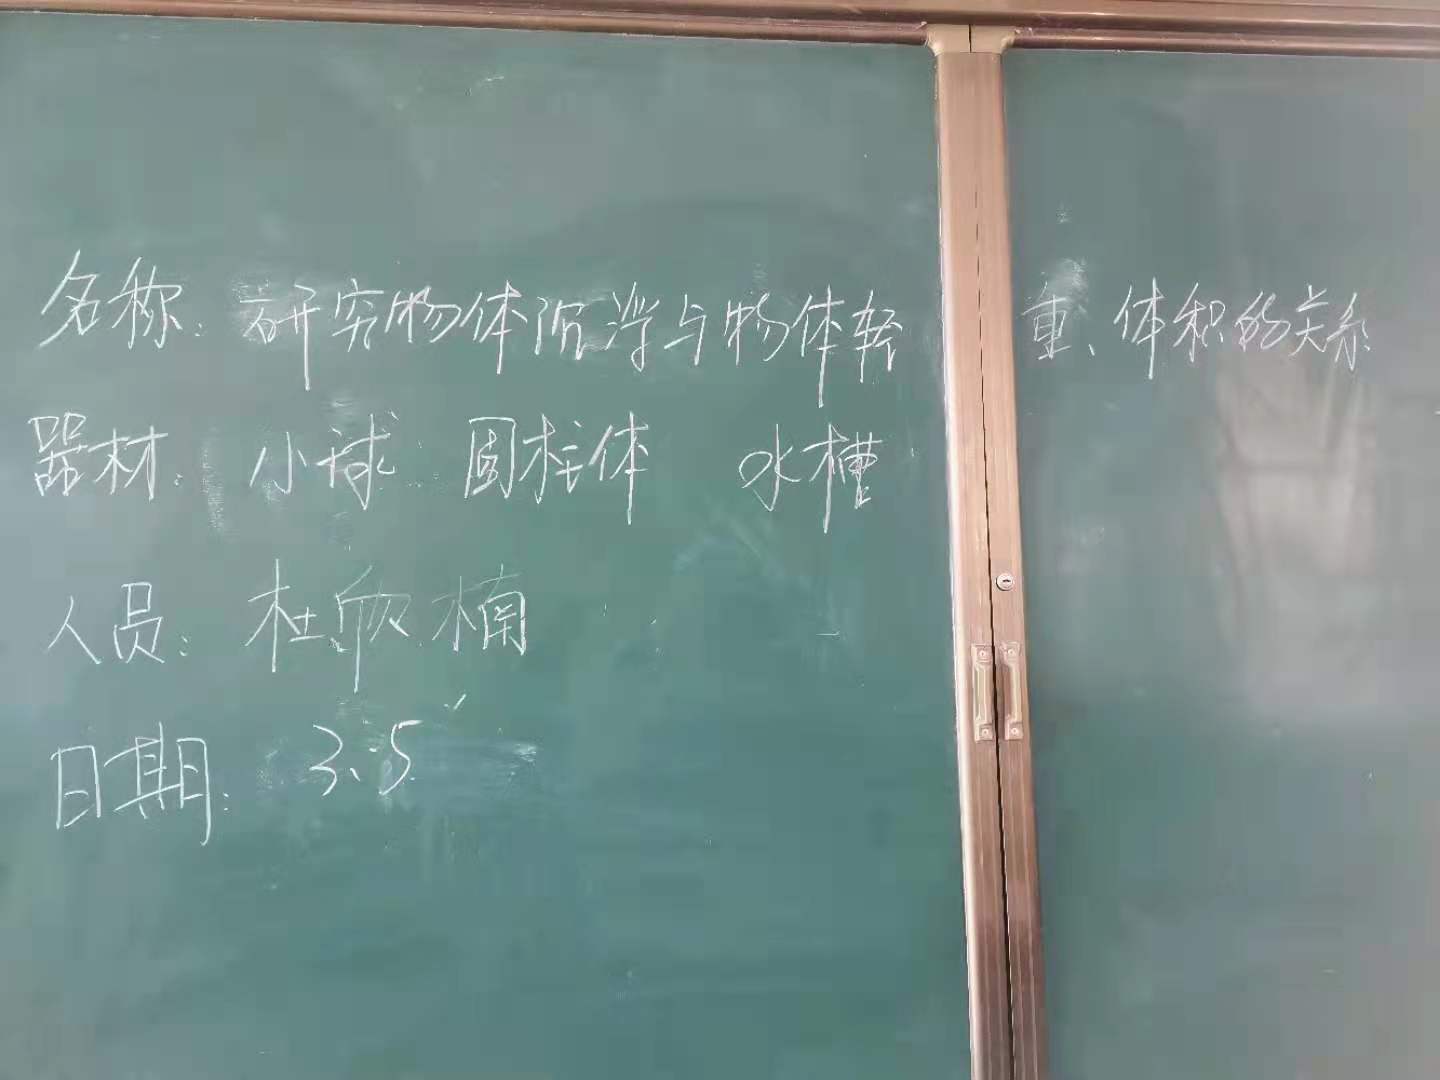 名称：研究物体沉浮与物体轻重、体积的关系
器材：小球 圆柱体 水槽
人员：杜 楠
日期：3.5